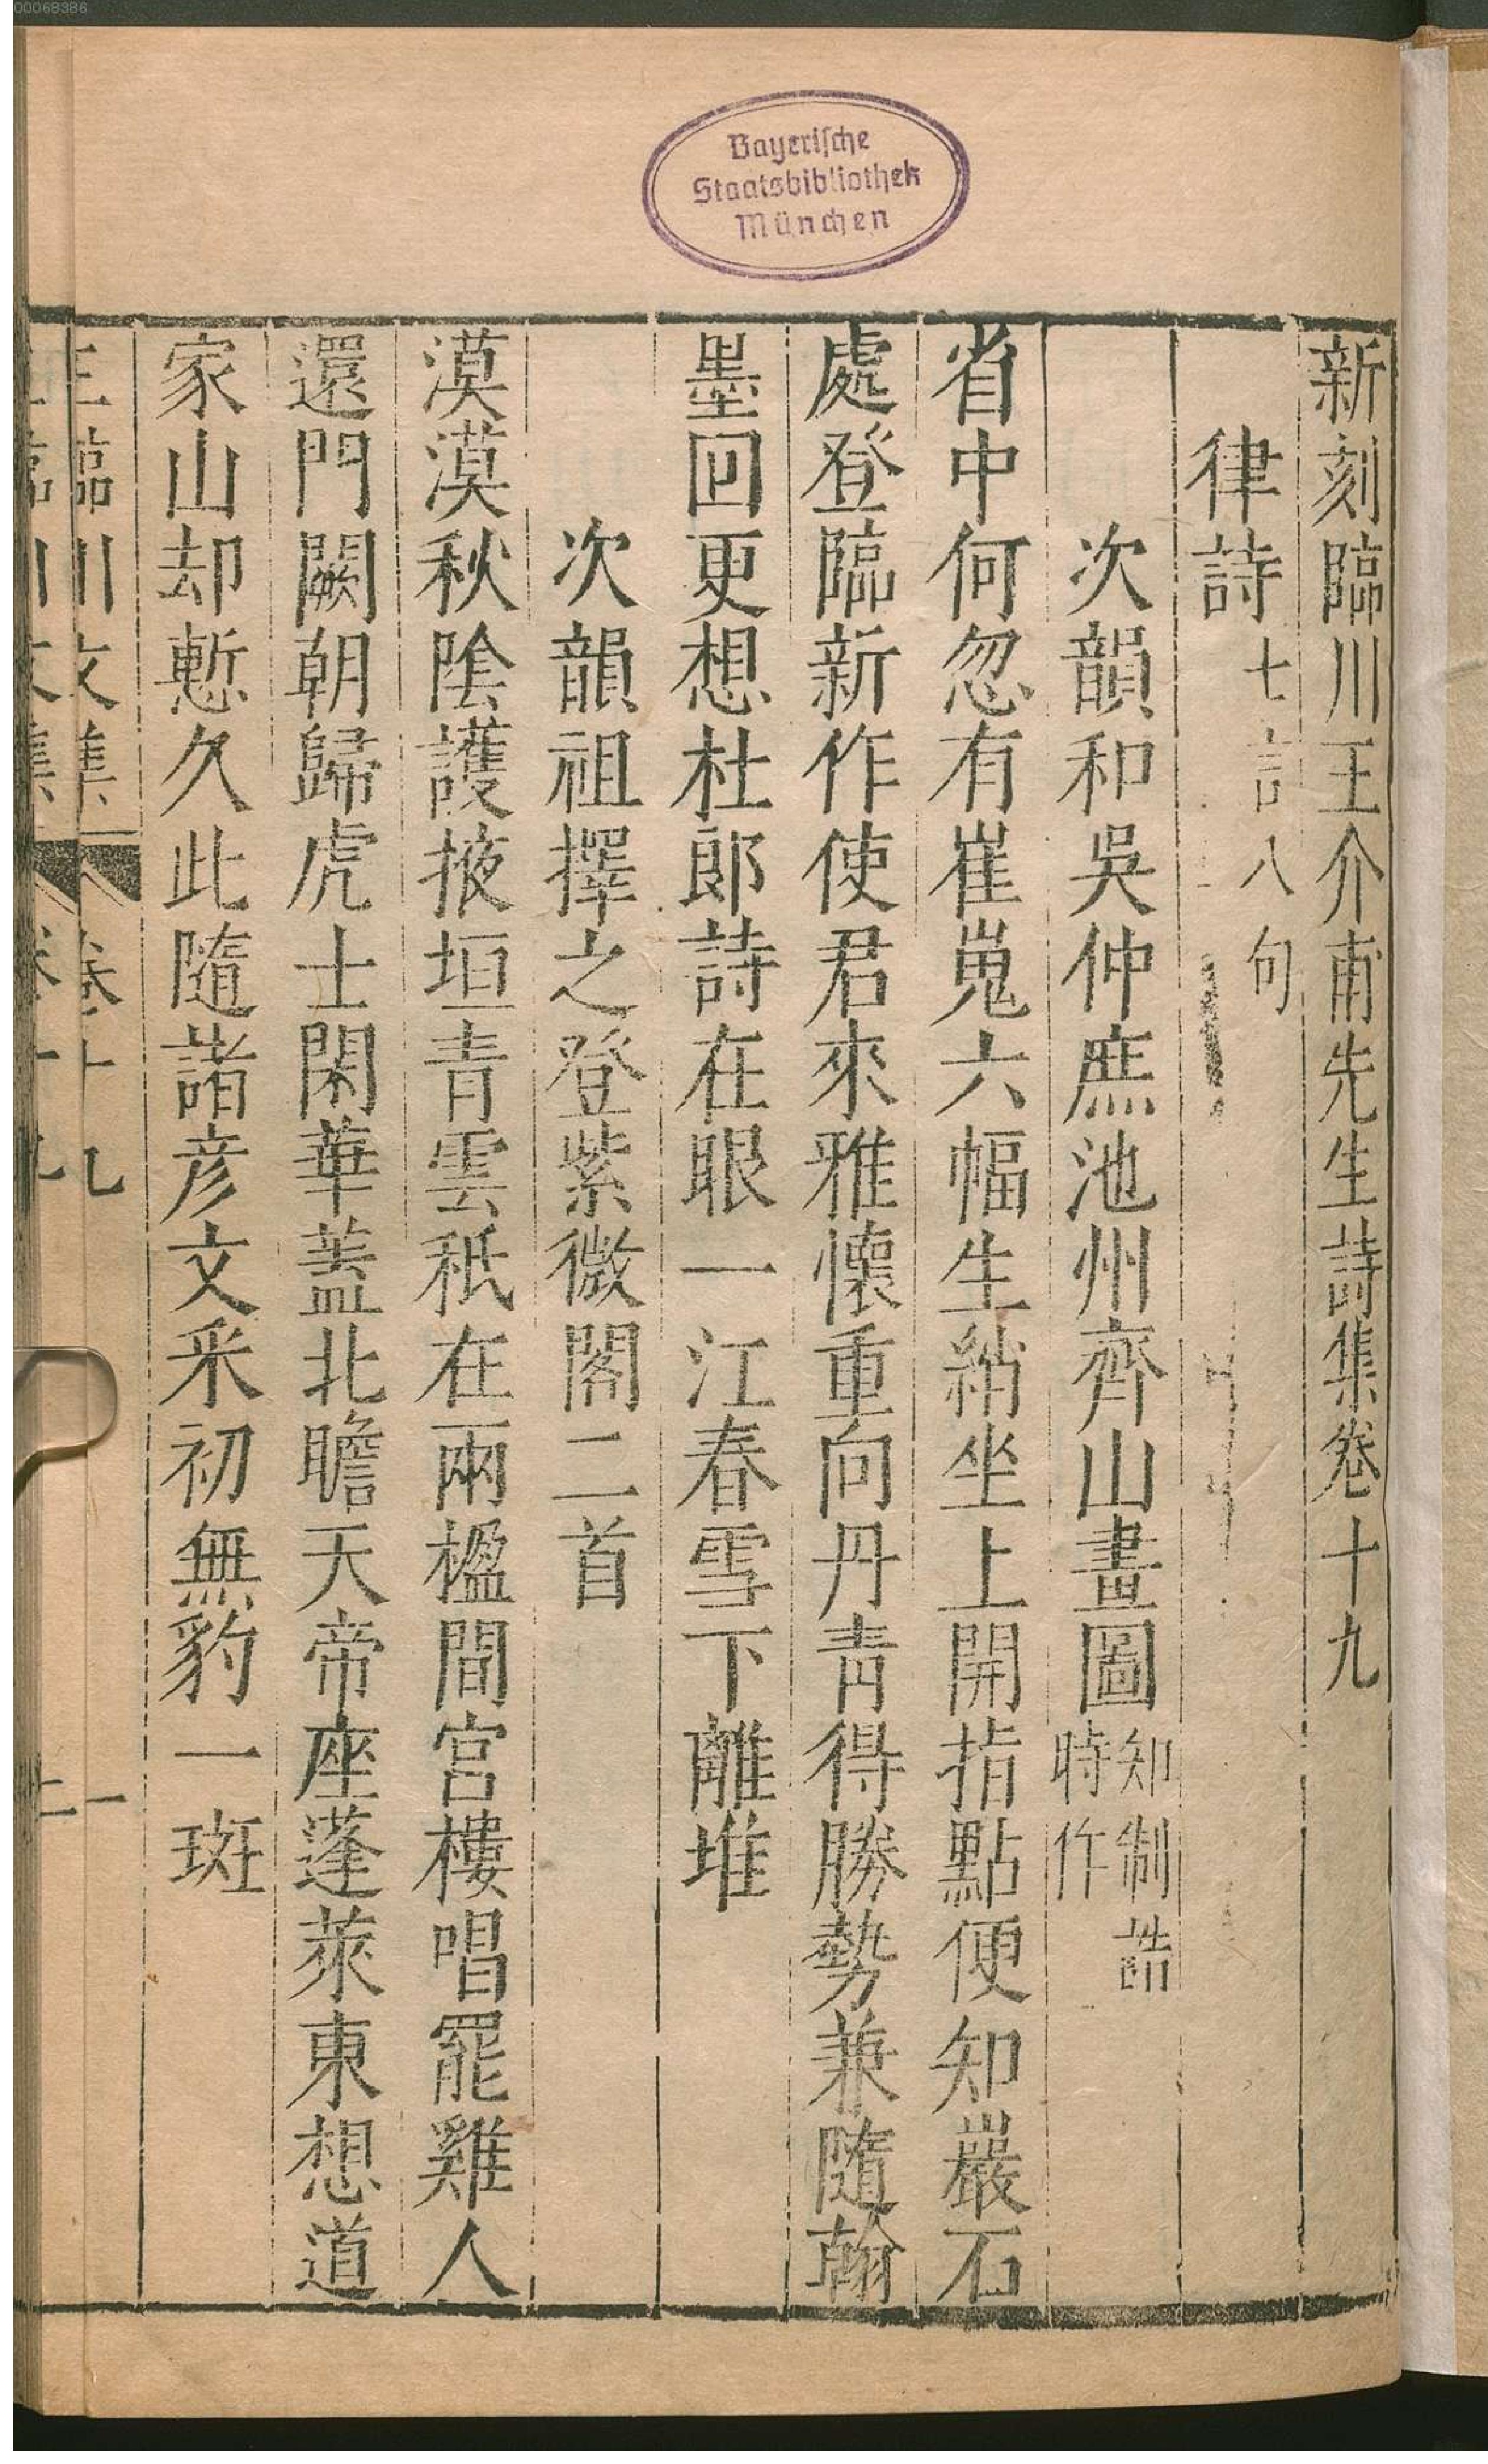 00068386
Bayerische
Staatsbibliothek
München
新刻臨川王介甫先生詩集卷十九
律詩七言八句
次韻和吳仲庶池州齊山畫圖知制誥時作
省中何忽有崔嵬六幅生綃坐上開指點便知巖石
處登臨新作使君來雅懷重向丹青得勝勢兼隨翰
墨回更想杜郎詩在眼一江春雪下離堆
次韻祖擇之登紫微閣二首
漠漠秋陰護掖垣青雲秖在兩楹間宮樓唱罷雞人
還門闕朝歸虎士閑華蓋北瞻天帝座蓬萊東想道
家山却慙久此隨諸彦文釆初無豹一斑
王臨川文集 卷十九 一
臨川文集 卷十九 二